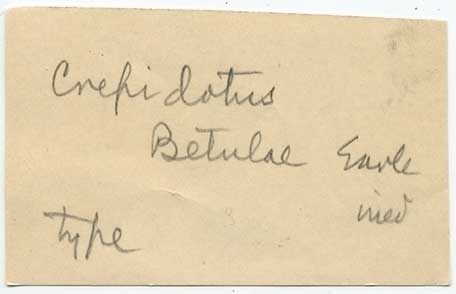 Crepidotus
Betulae Earle
ined
type